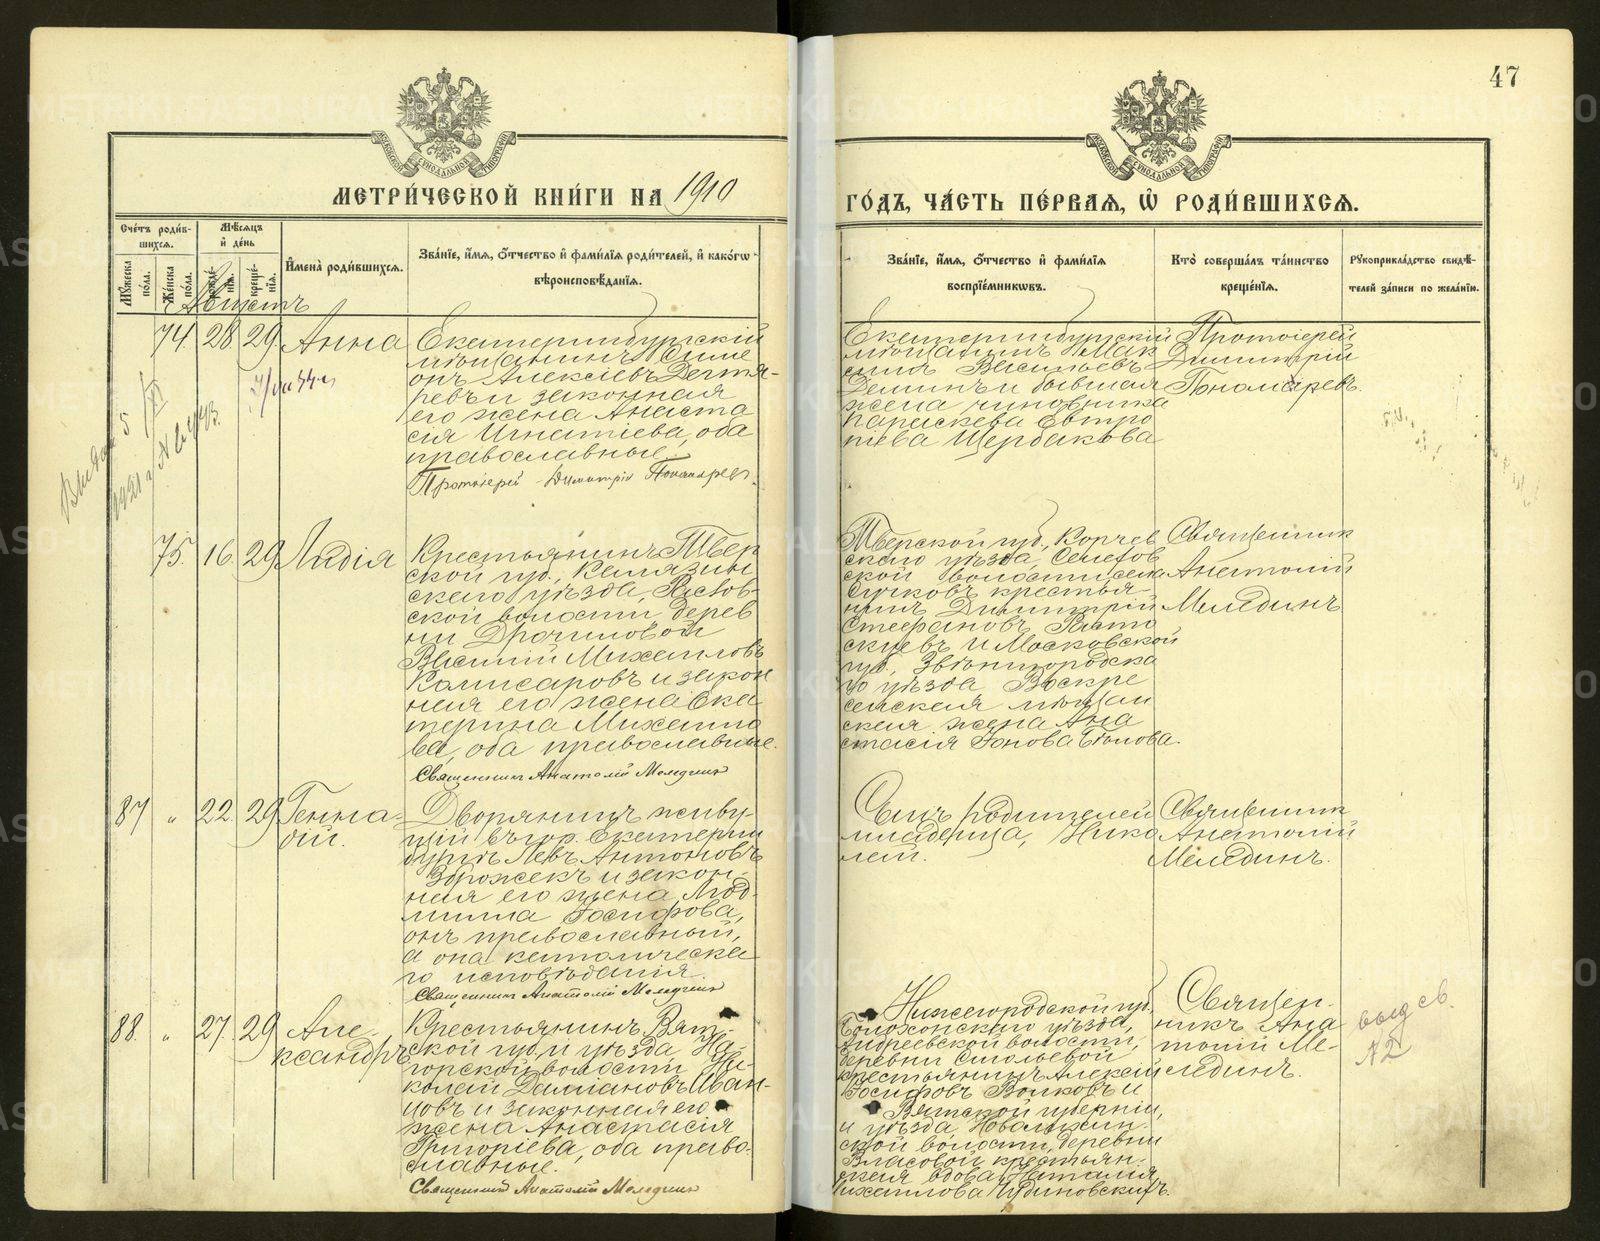 47
МОСКОВСКОЙ СѴНОДАЛЬНОЙ ТИПОГРАФІИ
МОСКОВСКОЙ СѴНОДАЛЬНОЙ ТИПОГРАФІИ
МЕТРИ́ЧЕСКОЙ КНИ́ГИ НА 1910
ГО́ДЪ, ЧА́СТЬ ПЕ́РВАѦ, Ѡ҆ РОДИ́ВШИХСѦ.
Сче́тъ роди́в-
шихсѧ.
Мꙋ́жеска по́ла.
Же́нска по́ла.
Мѣ́сѧцъ
и҆ де́нь
рожде́-
нїѧ.
креще́-
нїѧ.
И҆мена̀ роди́вшихсѧ.
Зва́нїе, и҆́мѧ, ѻ҆́тчество и҆ фами́лїѧ роди́телей, и҆ како́гѡ
вѣроисповѣ́данїѧ.
Зва́нїе, и҆́мѧ, ѻ҆́тчество и҆ фами́лїѧ
воспрїе́мникѡвъ.
Кто̀ соверша́лъ та́инство
креще́нїѧ.
Рꙋкоприкла́дство свидѣ́-
телей за́писи по жела́нїю.
Августъ
74. 28 29 Анна
Екатеринбургскій
мѣщанинъ Симе
онъ Алексіевъ Дегтя-
ревъ и законная
его жена Анаста
сія Игнатіева, оба
православные.
Протоіерей Димитрій Пономаревъ.
Екатеринбургскій
мѣщанинъ Мак
симъ Васильевъ
Деминъ и бывшая
жена чиновника
Параскева Евтро
піева Щербакова
Протоіерей
Димитрій
Пономаревъ.
75. 16. 29 Лидія
Крестьянинъ Твер
ской губ., Калязин
скаго уѣзда,
ской волости, дерев
ни Дрочиловой
Василій Михаиловъ
Комисаровъ и закон
ная его жена Ека
терина Михаило
ва, оба православные.
Священникъ Анатолій Мелединъ
Тверской губ., Корчев
скаго уѣзда,
ской волости, села
Сучковъ крестья-
нинъ Димитрій
Стефановъ
и Московской
губ., Звѣнигородска
го уѣзда, Воскре
сенская мѣщан
ская жена Ана
стасія Іонова Бѣлова.
Священникъ
Анатолій
Мелединъ
87 „ 22. 29 Генна-
дій.
Дворянинъ живу-
щій въ гор. Екатерин
бургѣ Левъ Антоновъ
Зорожекъ и закон-
ная его жена Люд-
мила Іосифова,
онъ православный,
а она католическа
го исповѣданія.
Священникъ Анатолій Мелединъ
Сынъ родителей
младенца, Нико
лай.
Священникъ
Анатолій
Мелединъ.
88. „ 27. 29 Але-
ксандръ
Крестьянинъ Вят-
ской губ. и уѣзда, На-
горской волости Ни-
колай Даміановъ Иван-
цовъ и законная его
жена Анастасія
Григоріева, оба право-
славные.
Священникъ Анатолій Мелединъ
Нижегородской губ.,
уѣзда,
Андреевской волости,
деревни Смольевой
крестьянинъ Алексій
Іосифовъ Волковъ и
Вятской губерніи,
и уѣзда,
ской волости, деревни
Власовой крестьян-
ская вдова Наталія
Михаилова
Священ-
никъ Ана
толій Ме-
лединъ.
выд св.
№2